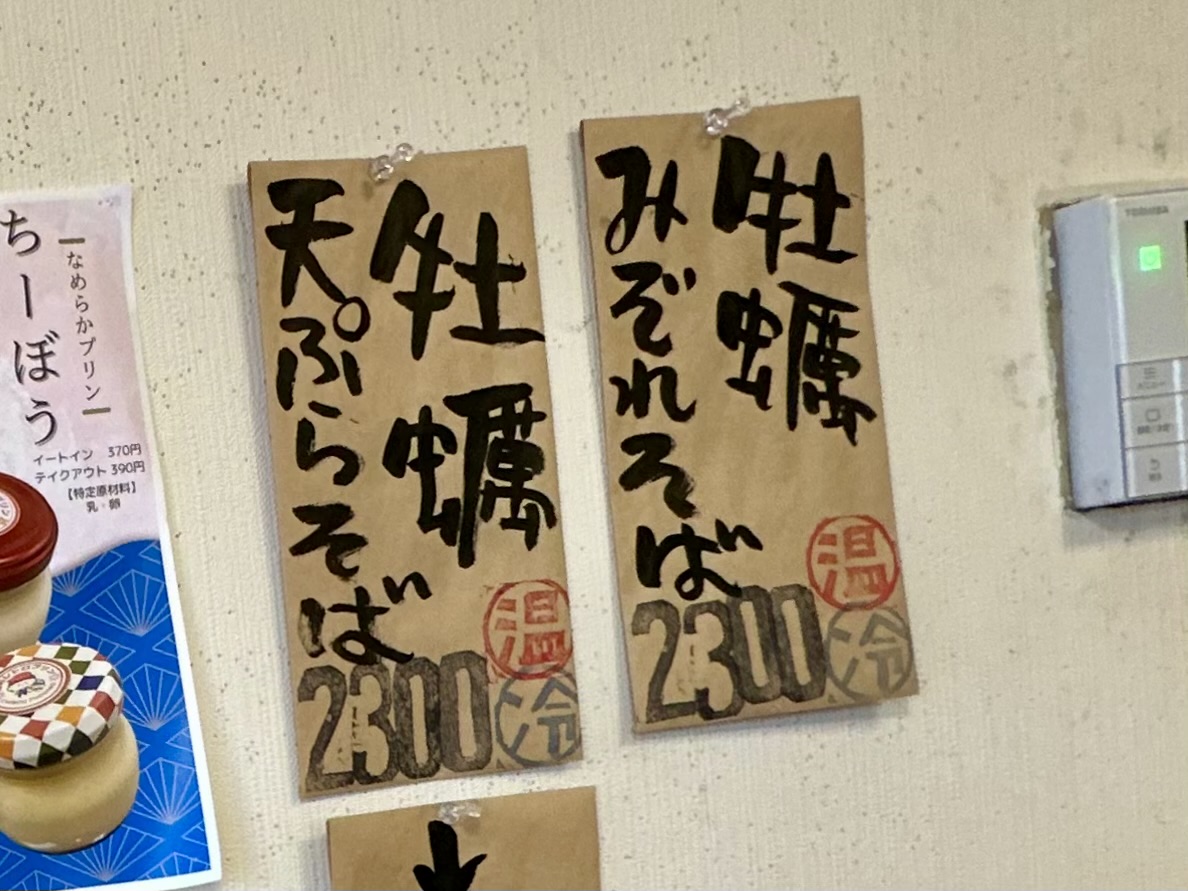 牡蠣
みぞれそば
温
冷
2300
牡蠣
天ぷらそば
温
冷
2300
なめらかプリン
ちーぼう
イートイン 370円
テイクアウト 390円
【特定原材料】
乳・卵
TOSHIBA
メニュー